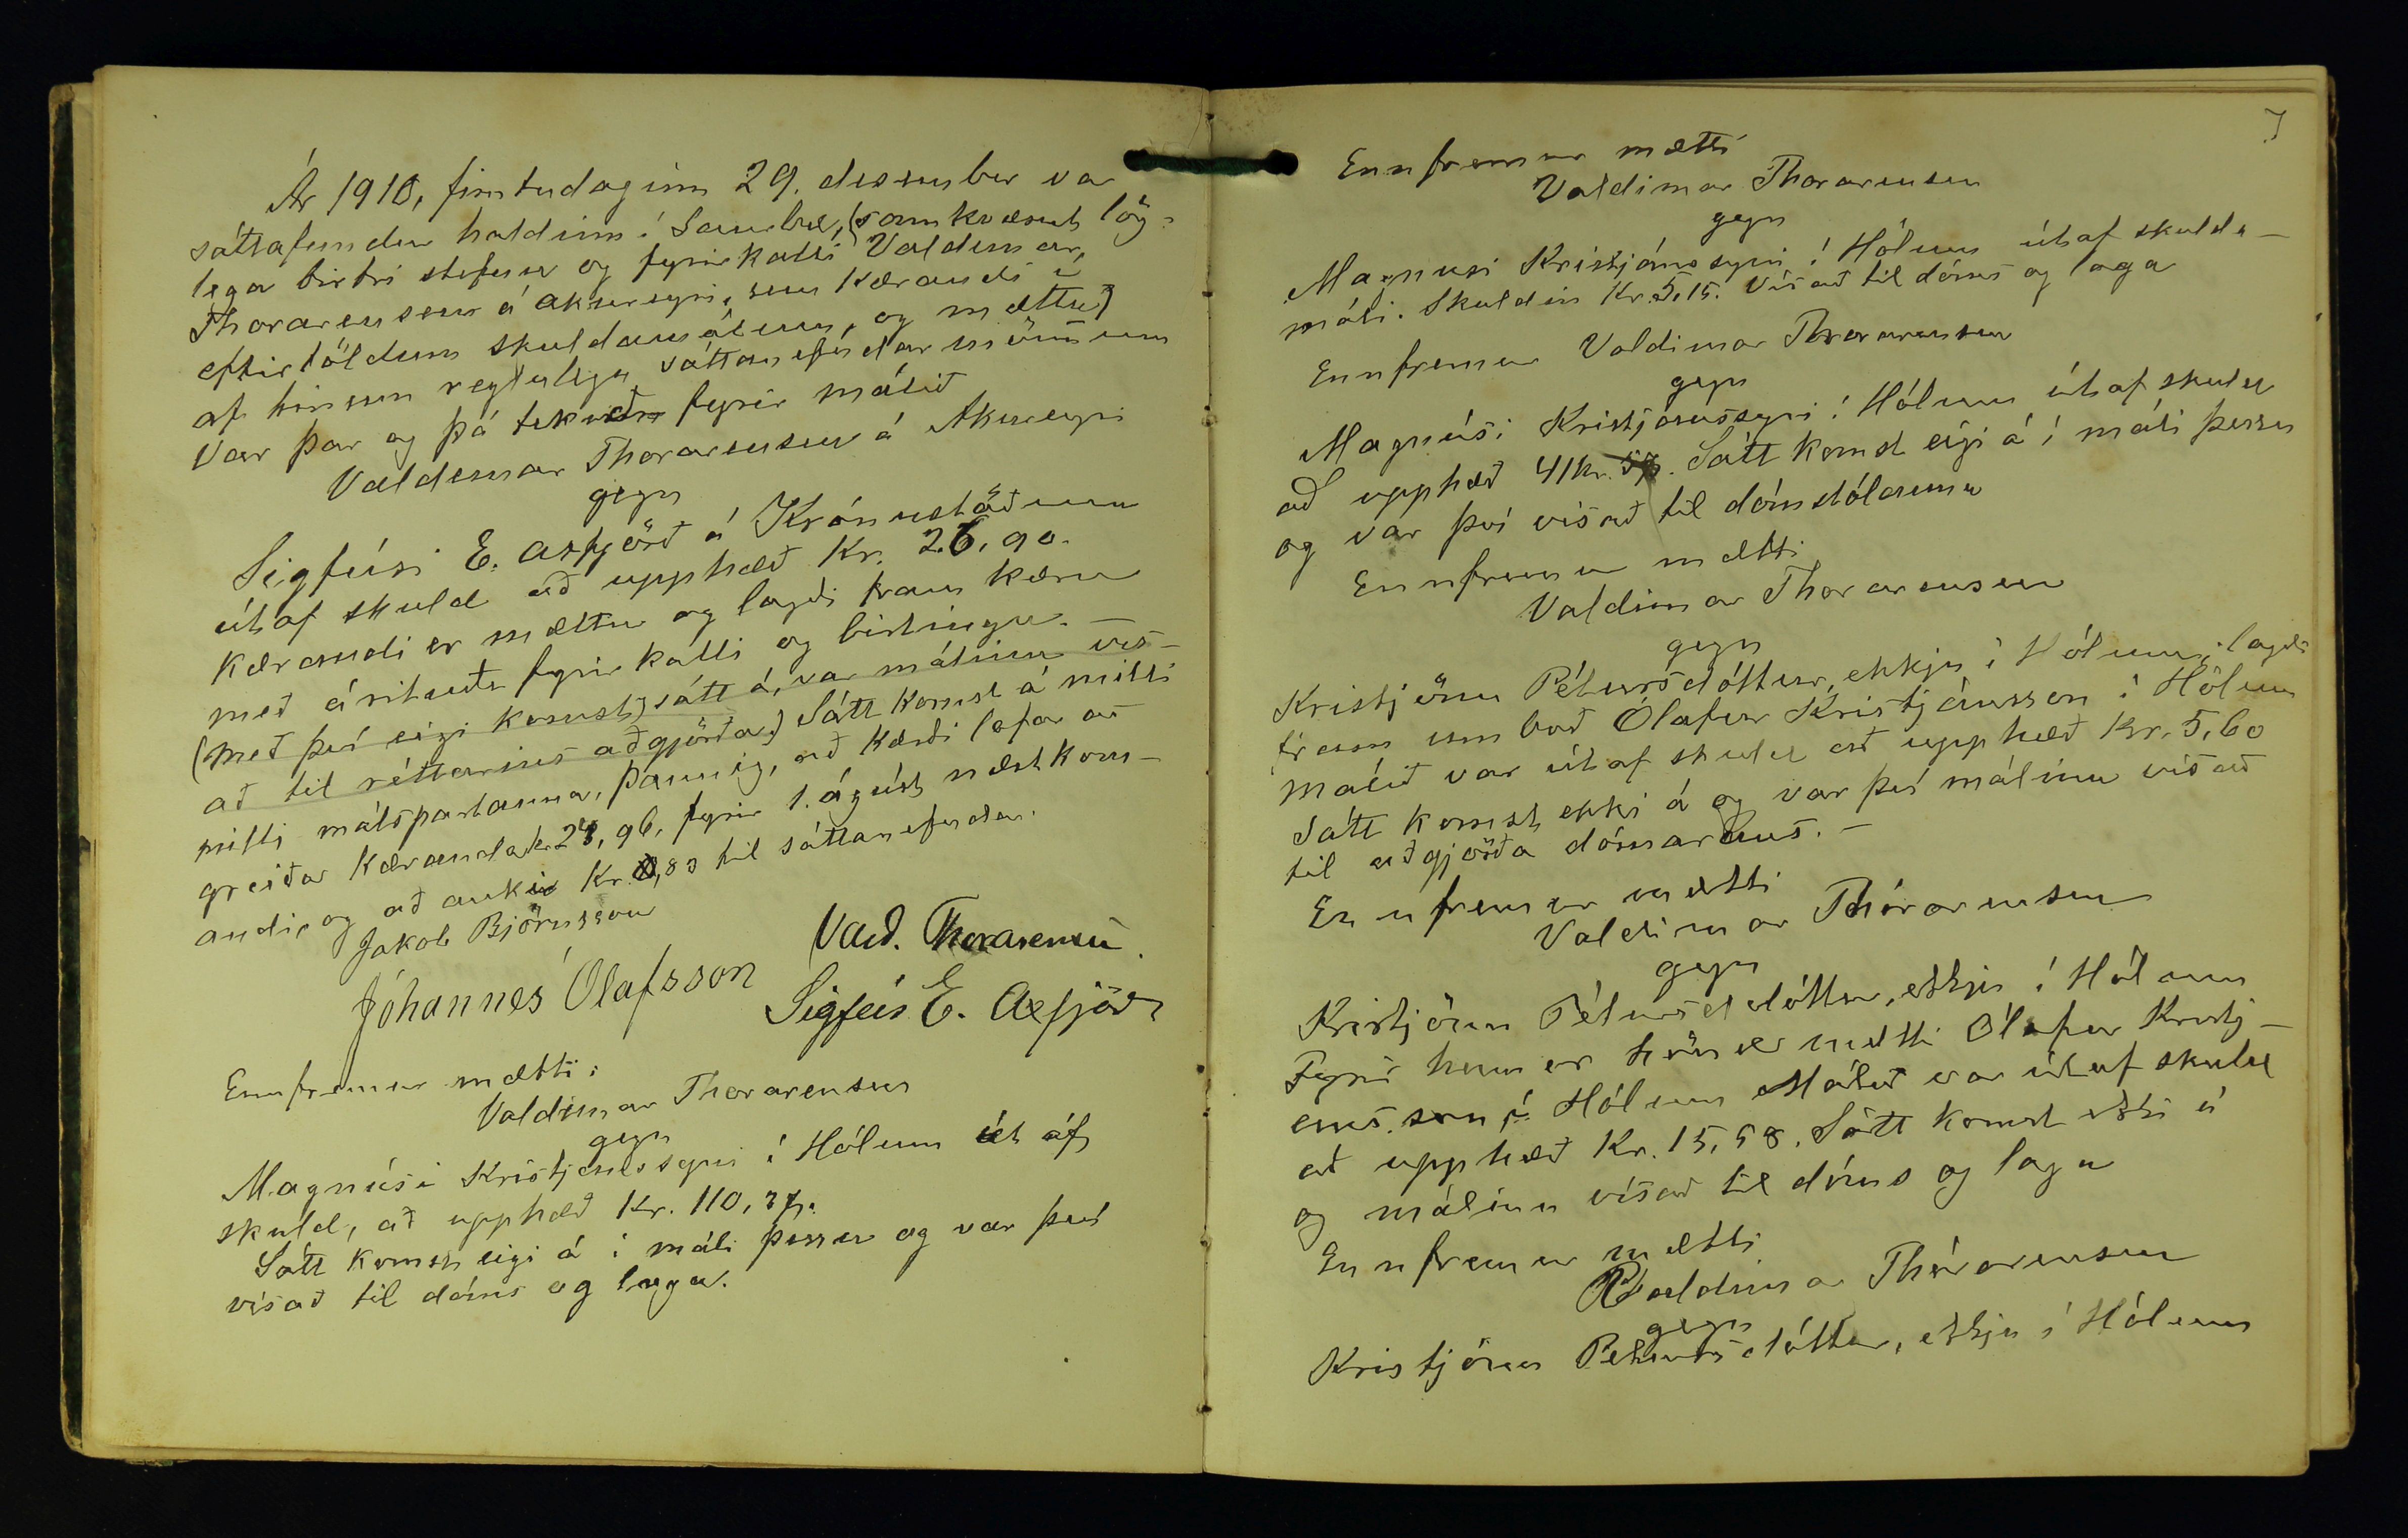 Ár 1910, fimtudaginn 29. desember var
sáttafundur haldinn í Saurbæ, (samkvæmt lög-
lega birtri stefnu og fyrirkalli Valdemar,
Thorarensens á Akureyri, sem kæranði í
eftirtöldum skuldamálum, og mættu)
af hinum reglulegu sáttanefndarmönnum
Var þar og þá tekið fyrir málið
Valdemar Thorarensen á Akureyri
gegn
Sigfúsi E. Axfjörð á Krónustöðum
útaf skuld að upphæð Kr. 26,90.
Kærandi er mættur og lagði fram kæru
með árituðu fyrirkalli og birtingu. —
(Með því eigi komst sátt á, var málinu vís-
að til réttarins aðgjörða) Sátt komst á milli
milli málspartanna, þannig, að kærði lofar að
greiða kæranda kr. 28,96, fyrir 1. ágúst næstkom-
andi, og að auki Kr. 0,83 til sáttanefndar.
Jakob Björnsson
Vald. Thorarensen.
Jóhannes Ólafsson
Sigfús E. Axfjörð
Ennfremur mætti:
Valdimar Thorarensen
gegn
Magnúsi Kristjánssyni í Hólum út áf
skuld, að upphæð Kr. 110,37.
Sátt komst eigi á í máli þessu og var því
vísað til dóms og laga.
7
Ennfremur mætti
Valdimar Thorarensen
gegn
Magnusi Kristjánssyni í Hólum útaf skulda-
máli. Skuldin Kr. 5,15. Vísað til dóms og laga
Ennfremur Valdimar Thorarensen
gegn
Magnúsi Kristjánssyni í Hólum útaf skuld
að upphæð 41 kr. Sátt komst eigi á í máli þessu
og var því vísað til dómstólanna
Ennfremur mætti
Valdimar Thorarensen
gegn
Kristjönu Pétursdóttur, ekkju í Hólum, lagði
fram umboð Ólafur Kristjánsson í Hólum
Málið var útaf skuld að upphæð Kr. 5,60
Sátt komst ekki á og var því málinu vísað
til aðgjörða dómarans. —
Ennfremur mætti
Valdimar Thórarensen
gegn
Kristjönu Pétursdóttur, ekkju í Hólum
Fyrir hennar hönd mætti Ólafur Kristj-
ánsson í Hólum Málið var útaf skuld
að upphæð Kr. 15,58. Sátt komst ekki á
og málinu vísað til dóms og laga
Ennfremur mætti
Valdimar Thórarensen
gegn
Kristjönu Pétursdóttur, ekkju í Hólum